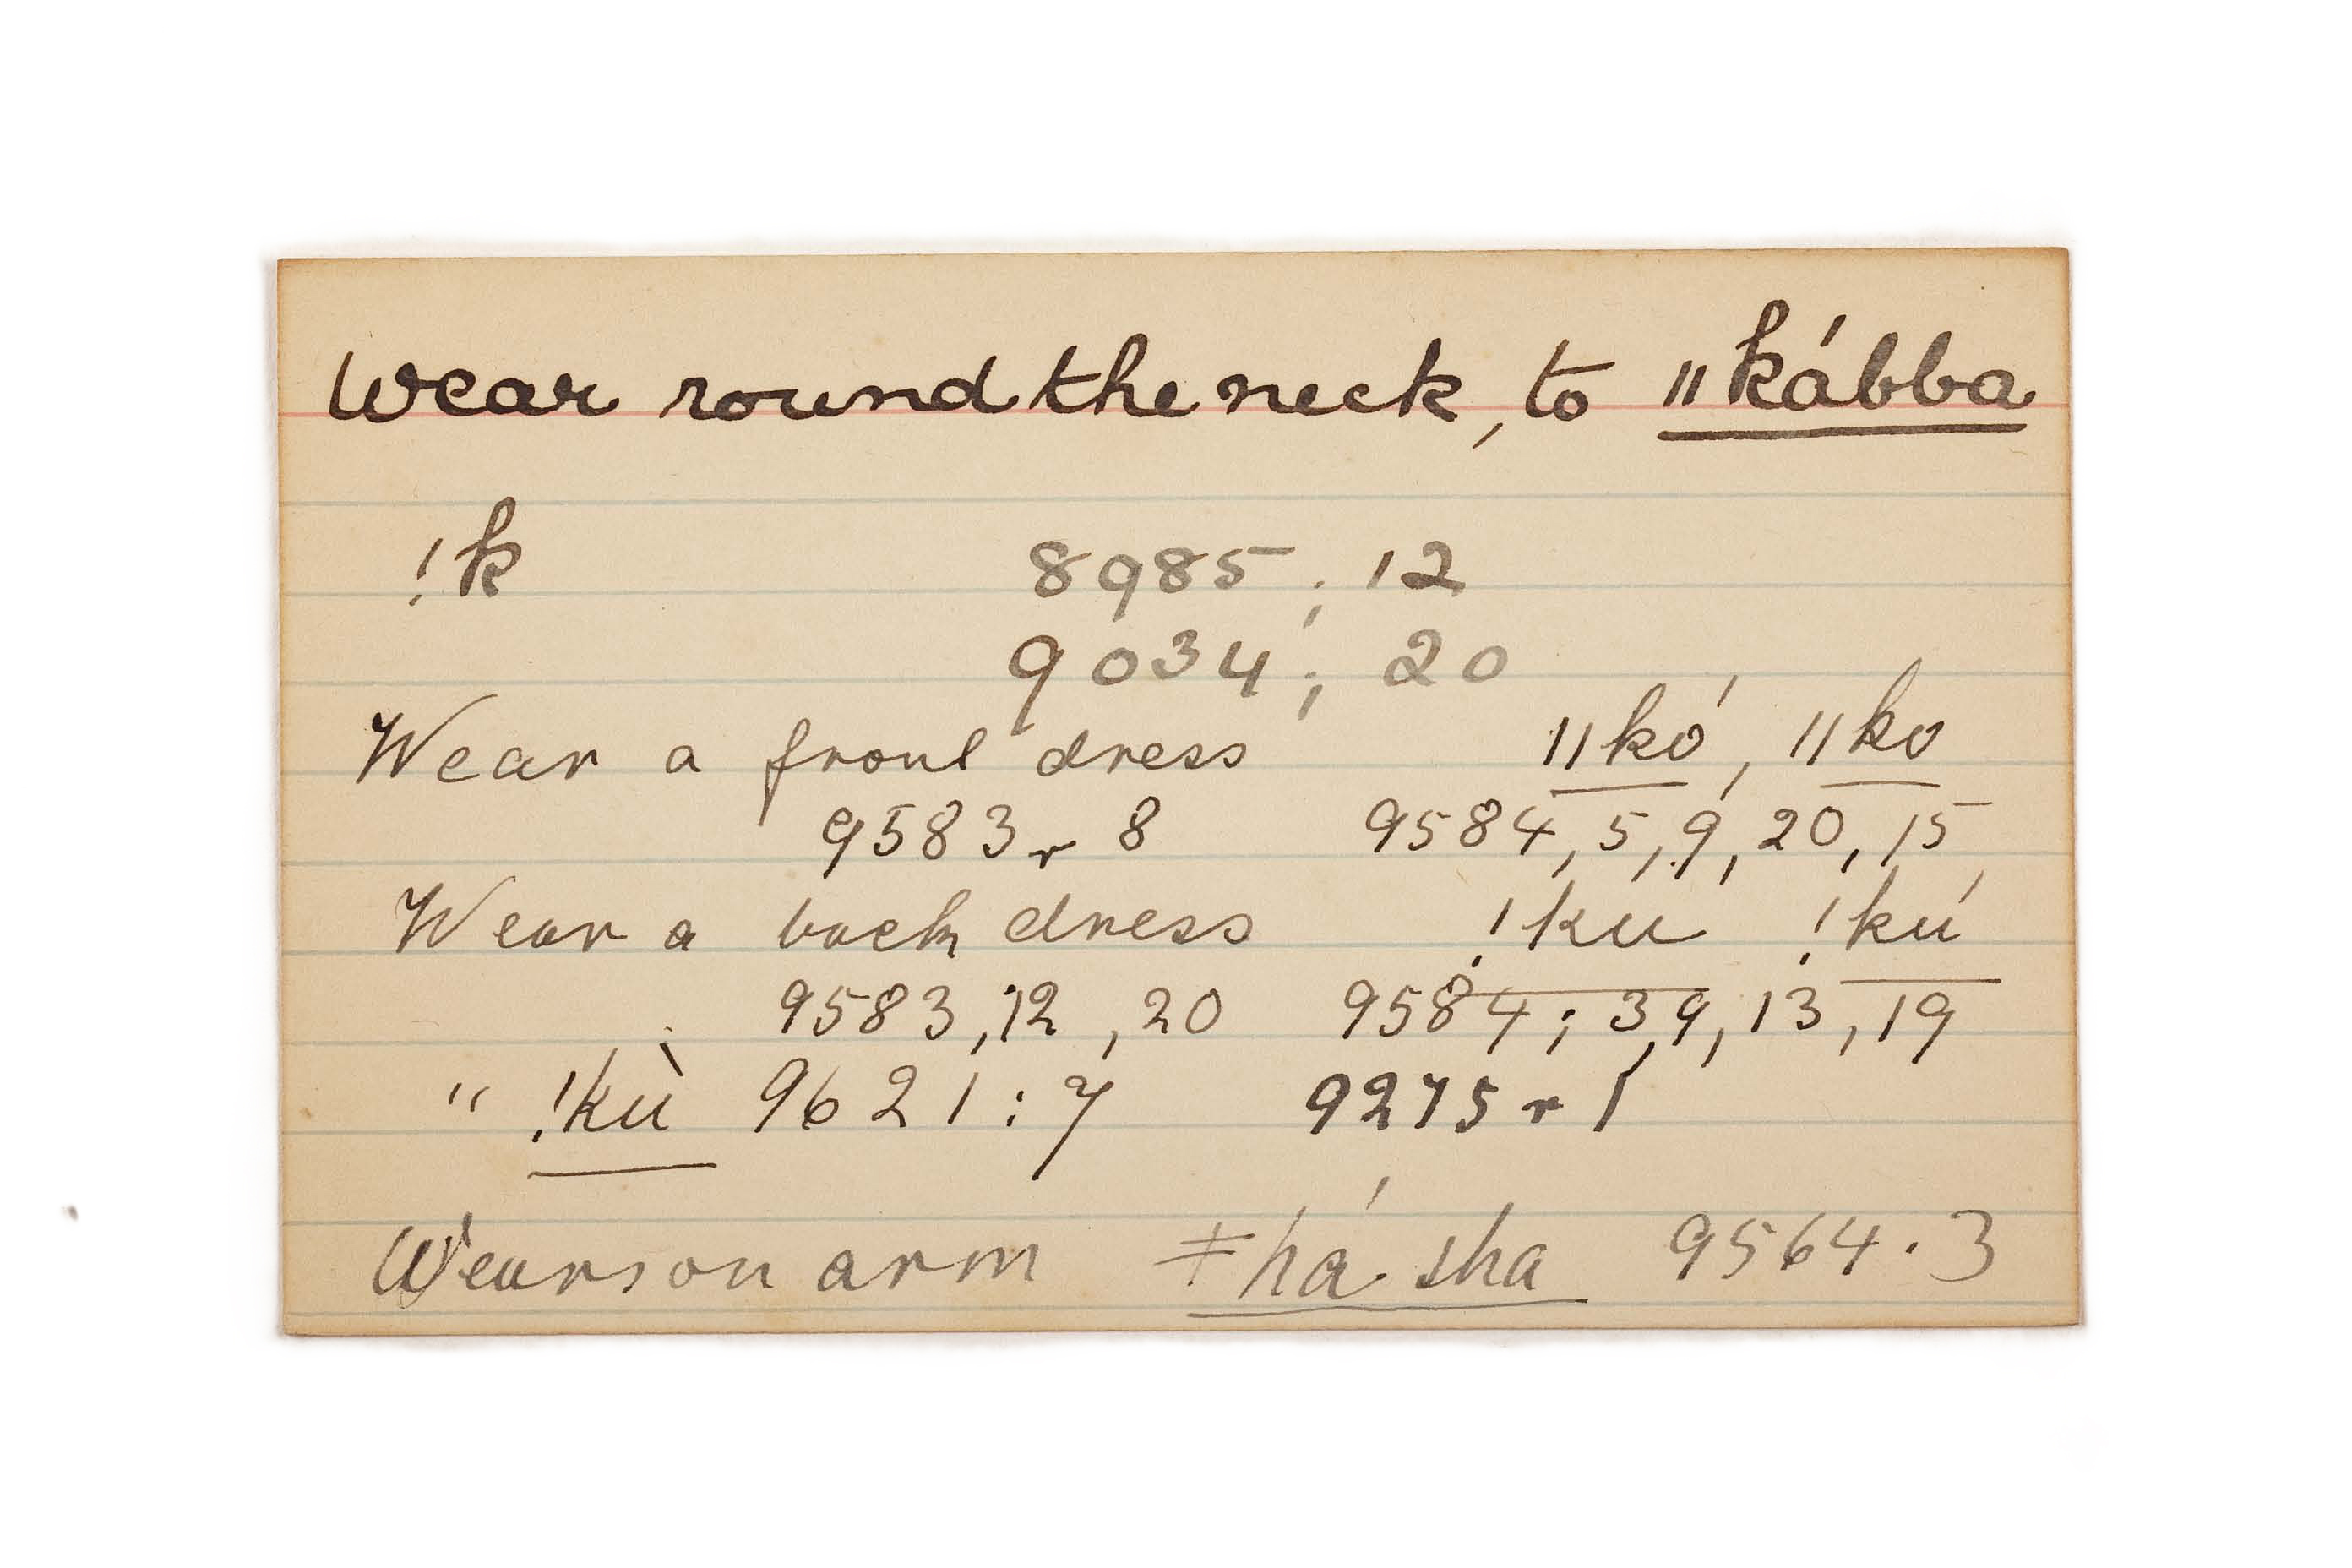 Wear round the neck, to ǁkábba
!k 8985; 12
9034; 20
Wear a front dress ǁkó, ǁko
9583 r 8 9584, 5, 9, 20, 15
Wear a back dress !ku !kú
9583, 12, 20 9584; 3, 9, 13, 19
" !kù 9621: 7 9275 r 1
Wears on arm ǂhá sha 9564. 3